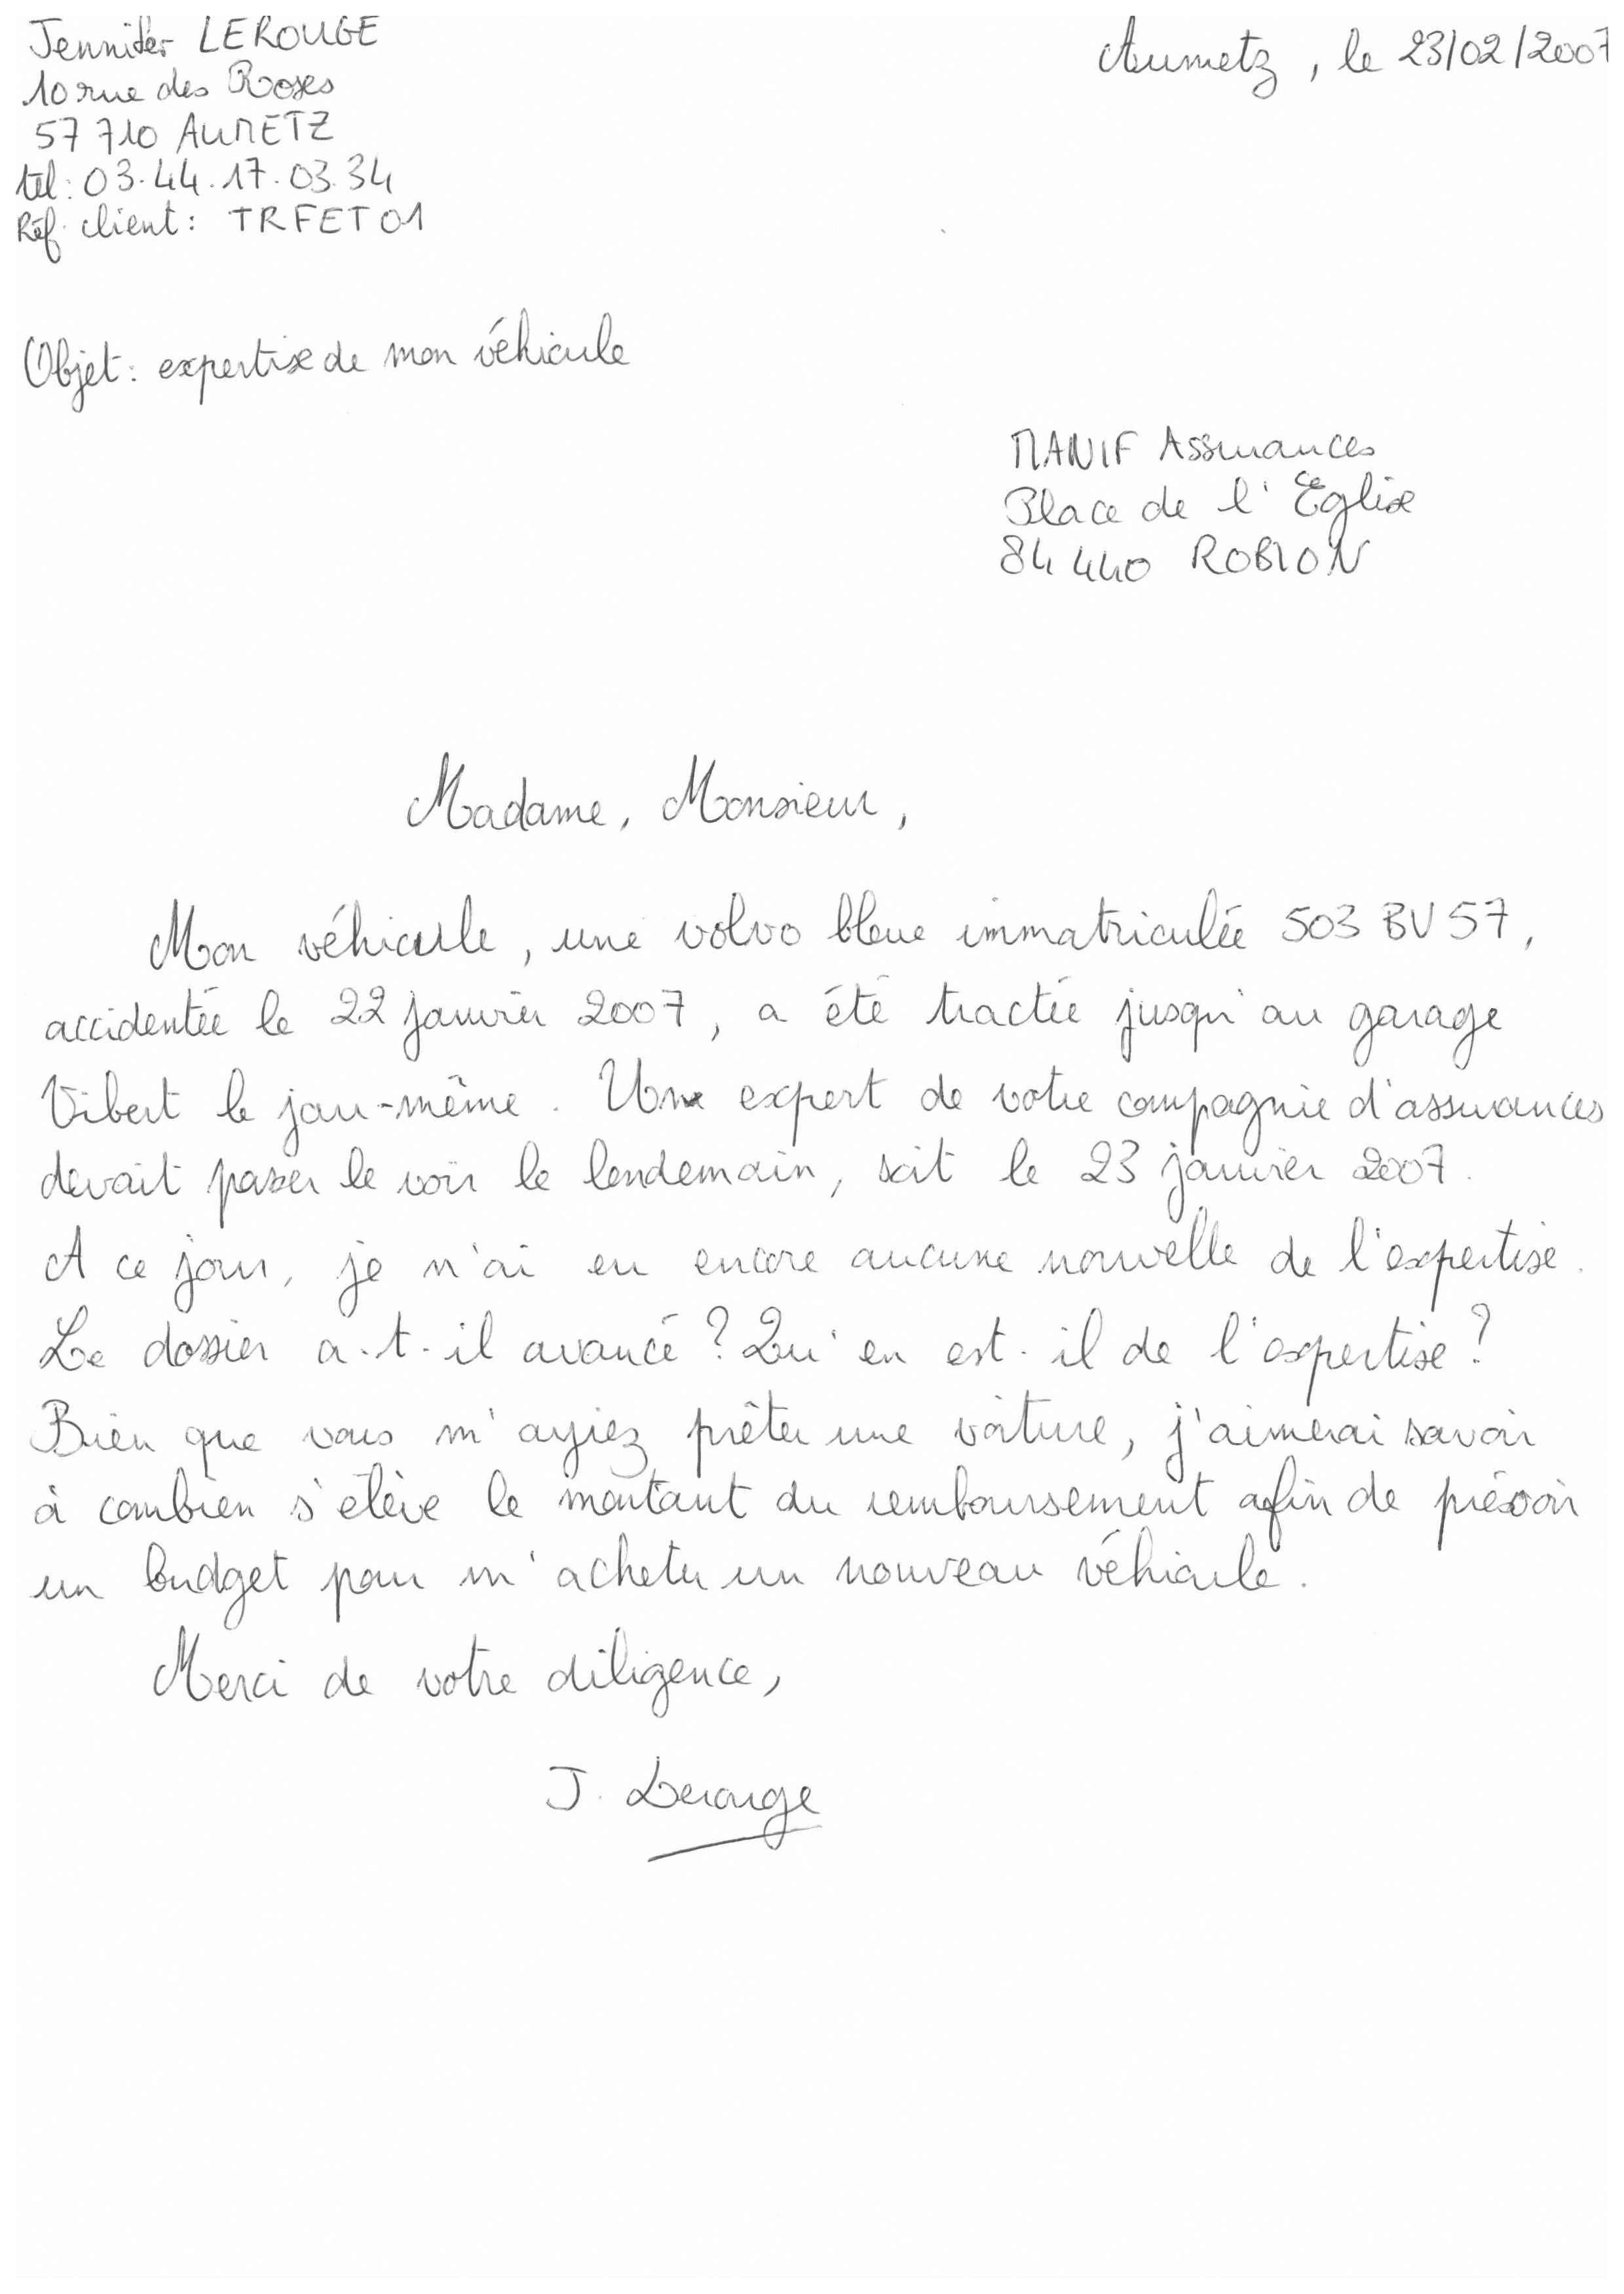 Jennifer LEROUGE
10 rue des Roses
57 710 AUMETZ
tél : 03.44.17.03.34
Réf. client : TRFET01
Aumetz, le 23/02/2007
Objet : expertise de mon véhicule
MANIF Assurances
Place de l'Eglise
84 440 ROBION
Madame, Monsieur,
Mon véhicule, une volvo bleue immatriculée 503 BV 57,
accidentée le 22 janvier 2007, a été tractée jusqu'au garage
Vibert le jour-même. Un expert de votre compagnie d'assurances
devait passer le voir le lendemain, soit le 23 janvier 2007.
A ce jour, je n'ai eu encore aucune nouvelle de l'expertise.
Le dossier a-t-il avancé ? Qu'en est-il de l'expertise ?
Bien que vous m'ayiez prêter une voiture, j'aimerai savoir
à combien s'élève le montant du remboursement afin de prévoir
un budget pour m'acheter un nouveau véhicule.
Merci de votre diligence,
J. Lerouge